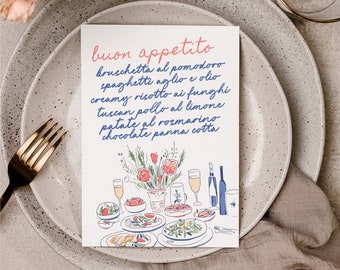 buon appetito
bruschetta al pomodoro
spaghetti aglio e olio
creamy risotto ai funghi
tuscan pollo al limone
patate al rosmarino
chocolate panna cotta